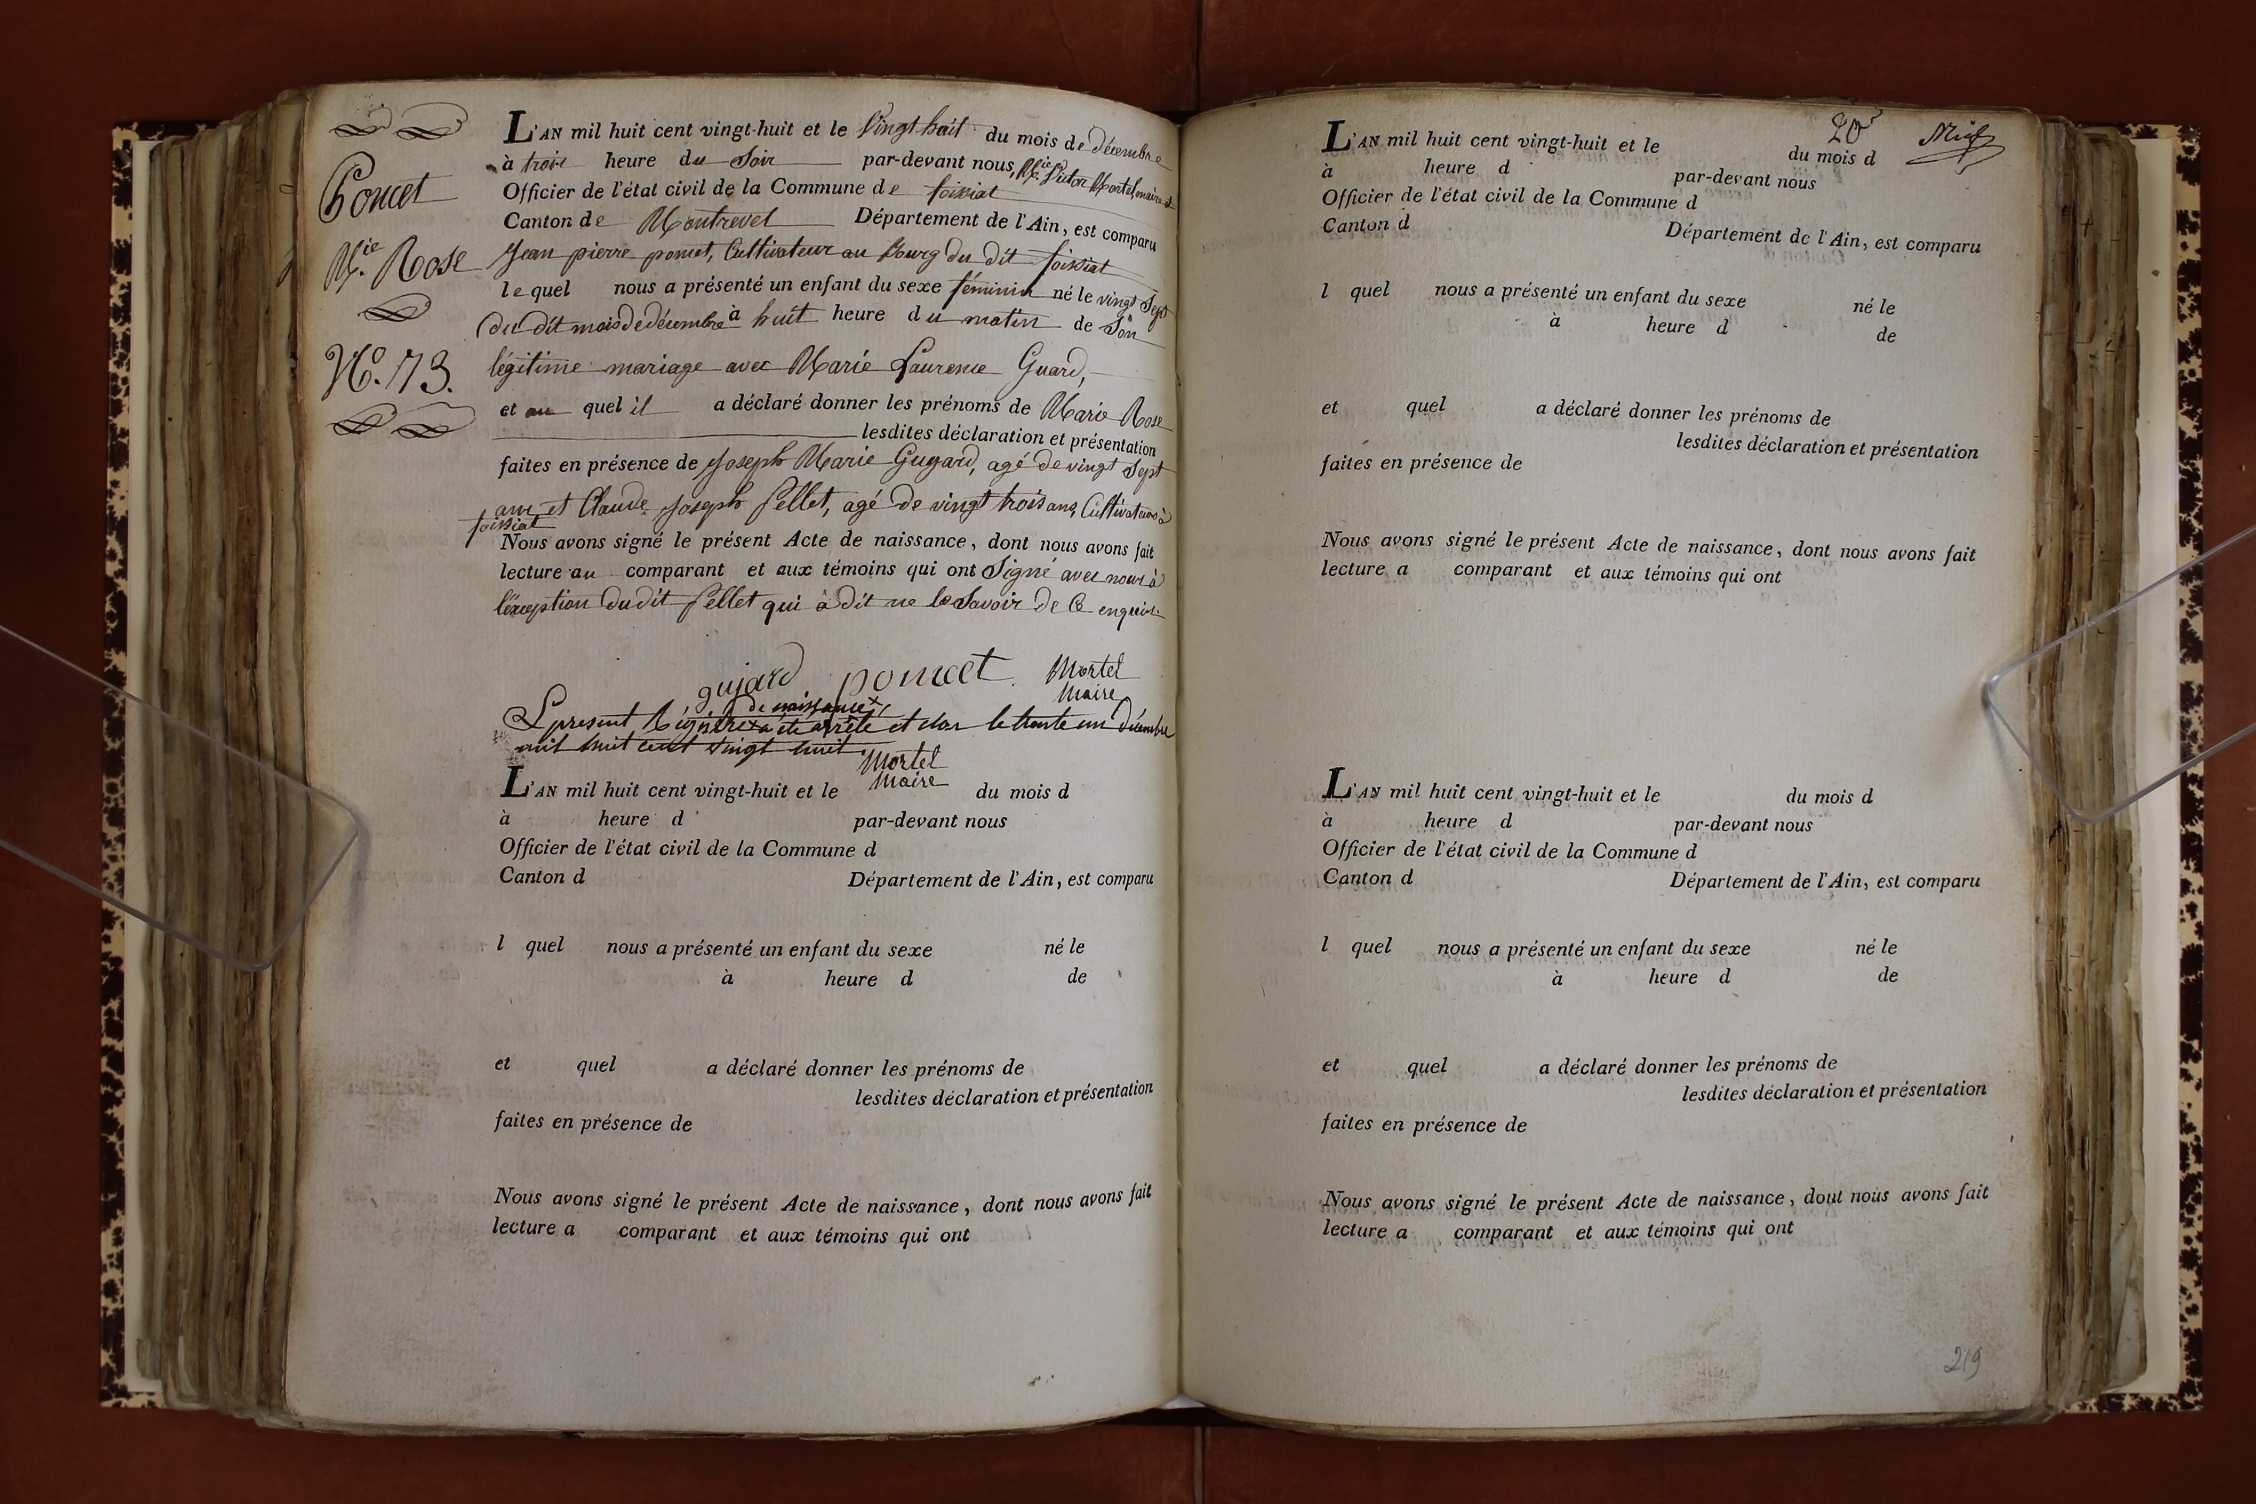 Poncet
M.ie Rose
N.o 73.
L'AN mil huit cent vingt-huit et le vingt huit du mois de décembre
à trois heure du Soir par-devant nous, M.ie Victor Mortel, maire et
Officier de l'état civil de la Commune de foissiat
Canton de Montrevel Département de l'Ain, est comparu
Jean pierre poncet, Cultivateur au Bourg du dit foissiat
lequel nous a présenté un enfant du sexe féminin né le vingt Sept
du dit mois de décembre à huit heure du matin de Son
légitime mariage avec Marie Laurence Guard,
et au quel il a déclaré donner les prénoms de Marie Rose
lesdites déclaration et présentation
faites en présence de Joseph Marie Guyard, agé de vingt Sept
ans et Claude Joseph Pellet, agé de vingt trois ans, Cultivateurs à
foissiat
Nous avons signé le présent Acte de naissance, dont nous avons fait
lecture au comparant et aux témoins qui ont Signé avec nous à
l'éxception du dit Pellet qui à dit ne le Savoir de ce enquis
gujard poncet Mortel
Maire
de naissance x
Le present Régistre x a été arrêté et clos le trente un Décembre
mil huit cent vingt huit.
Mortel
Maire
L'AN mil huit cent vingt-huit et le du mois d
à heure d par-devant nous
Officier de l'état civil de la Commune d
Canton d Département de l'Ain, est comparu
l quel nous a présenté un enfant du sexe né le
à heure d de
et quel a déclaré donner les prénoms de
lesdites déclaration et présentation
faites en présence de
Nous avons signé le présent Acte de naissance, dont nous avons fait
lecture a comparant et aux témoins qui ont
20
L'AN mil huit cent vingt-huit et le du mois d
à heure d par-devant nous
Officier de l'état civil de la Commune d
Canton d Département de l'Ain, est comparu
l quel nous a présenté un enfant du sexe né le
à heure d de
et quel a déclaré donner les prénoms de
lesdites déclaration et présentation
faites en présence de
Nous avons signé le présent Acte de naissance, dont nous avons fait
lecture a comparant et aux témoins qui ont
L'AN mil huit cent vingt-huit et le du mois d
à heure d par-devant nous
Officier de l'état civil de la Commune d
Canton d Département de l'Ain, est comparu
l quel nous a présenté un enfant du sexe né le
à heure d de
et quel a déclaré donner les prénoms de
lesdites déclaration et présentation
faites en présence de
Nous avons signé le présent Acte de naissance, dont nous avons fait
lecture a comparant et aux témoins qui ont
219